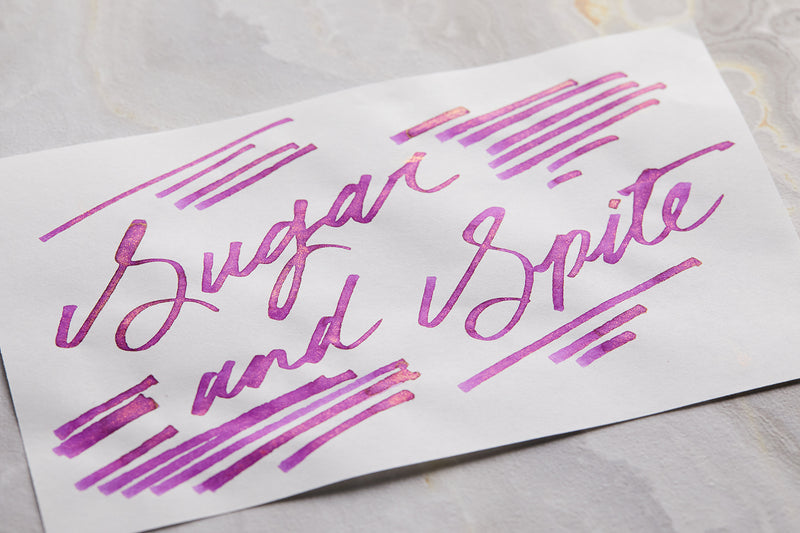 Sugar
and Spite